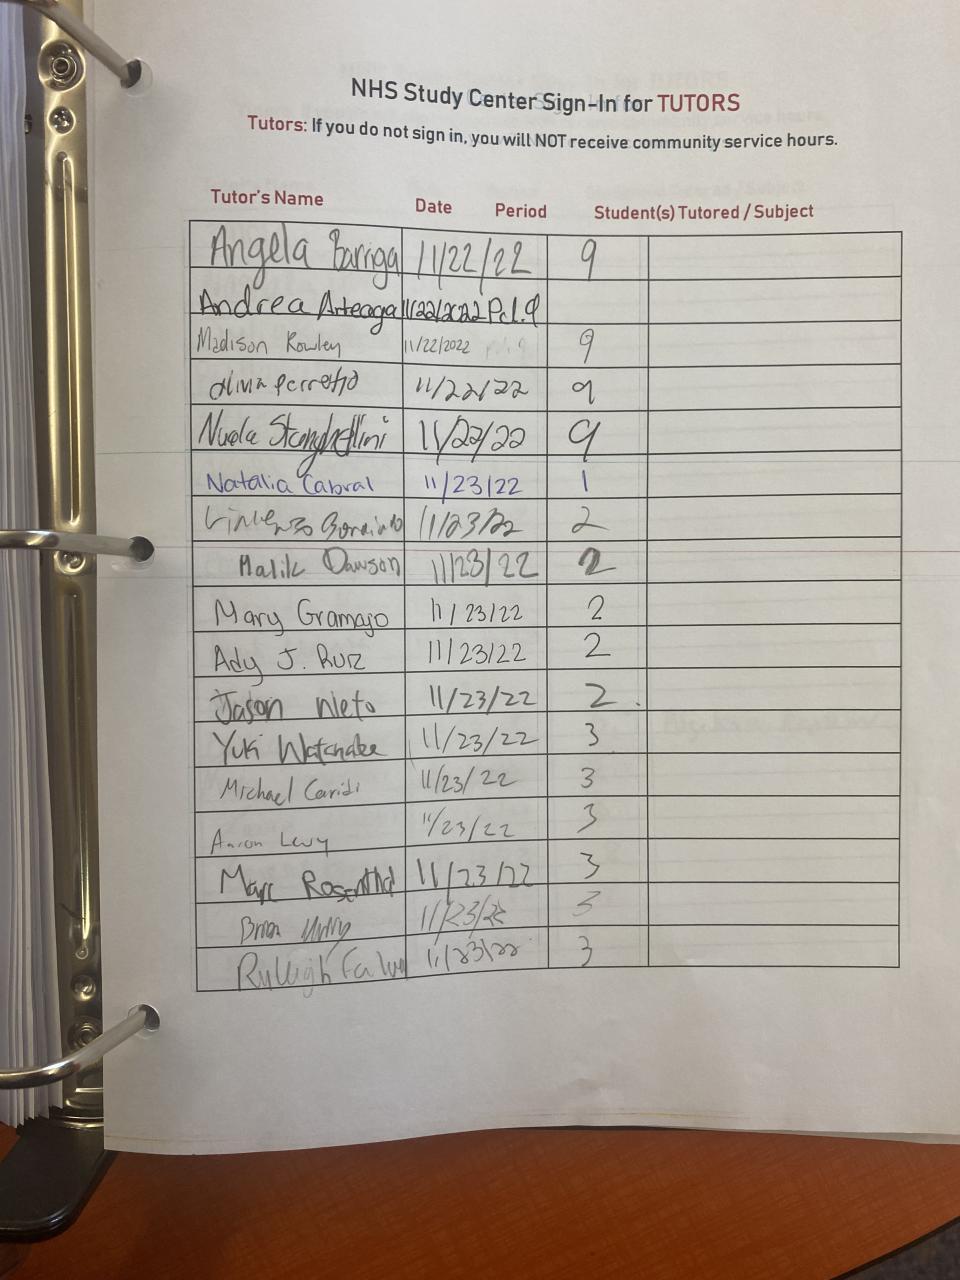 NHS Study Center Sign-In for TUTORS
Tutors: If you do not sign in, you will NOT receive community service hours.
Tutor's Name Date Period Student(s) Tutored / Subject
Angela Barriga 11/22/22 9
Andrea Arteaga 11/22/2022 Pd.9
Madison Rowley 11/22/2022 pd.9 9
Olivia Perretta 11/22/22 9
Nuala Stanghellini 11/22/22 9
Natalia Cabral 11/23/22 1
Vincenzo 11/23/22 2
Malik Dawson 11/23/22 2
Mary Gramajo 11/23/22 2
Ady J. Ruiz 11/23/22 2
Jason Nieto 11/23/22 2
Yuki Watanabe 11/23/22 3
Michael Caridi 11/23/22 3
Aaron Levy 11/23/22 3
Marc Rosenthal 11/23/22 3
Brian 11/23/22 3
Ryleigh 11/23/22 3